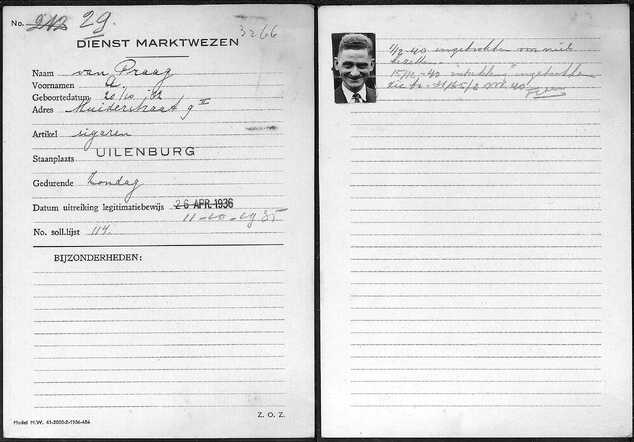 No. 242 29.
3266
DIENST MARKTWEZEN
Naam van Praag
Voornamen
Geboortedatum 20/10 '12
Adres Muiderstraat 9 II
Artikel sigaren
Staanplaats UILENBURG
Gedurende Zondag
Datum uitreiking legitimatiebewijs 26 APR. 1936
11-10-1935
No. soll.lijst 114.
BIJZONDERHEDEN:
Z. O. Z.
Model M.W. 41-2000-2-1936-486
2-40 ingetrokken wegens niet
15/2-40 "intrekking" ingetrokken
zie